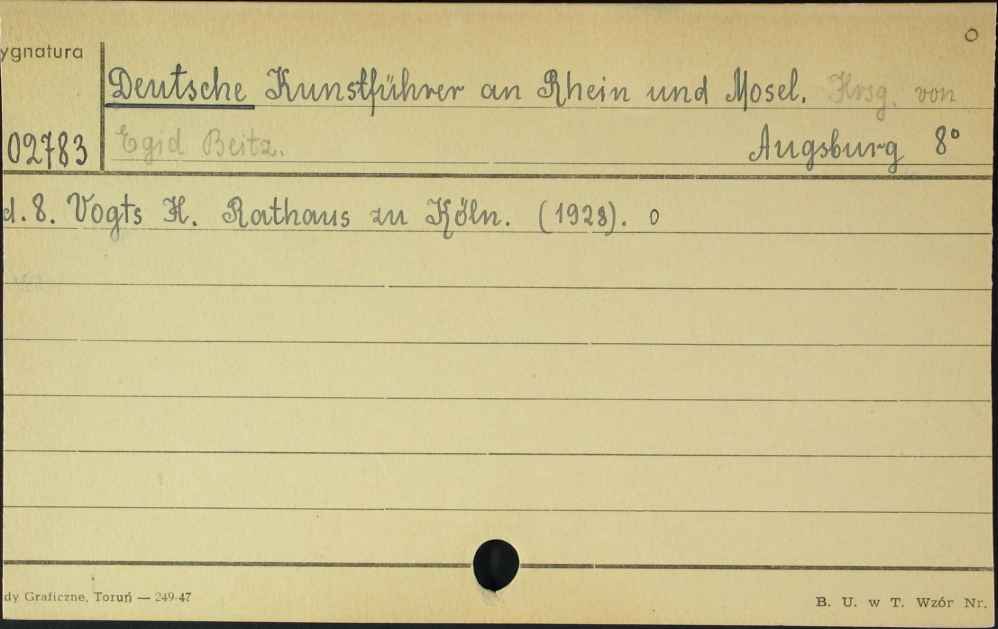 o
ygnatura
Deutsche Kunstführer an Rhein und Mosel. Hrsg. von
02783 Egid Beitz. Augsburg 8°
d. 8. Vogts H. Rathaus zu Köln. (1928). o
dy Graficzne, Toruń — 249-47
B. U. w T. Wzór Nr.